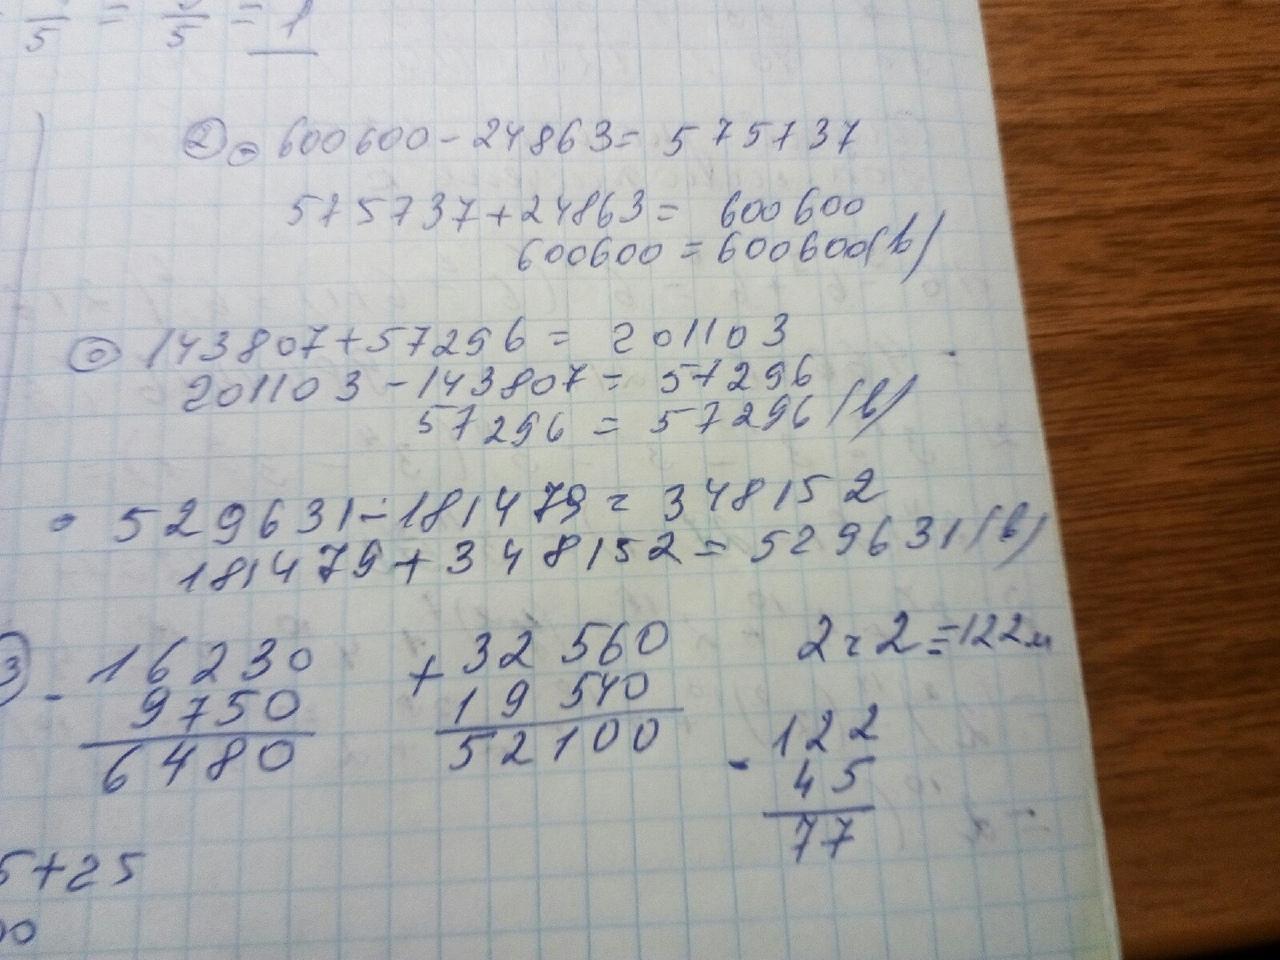 5 = 5 = 1
② 600600 - 24863 = 575737
575737 + 24863 = 600600
600600 = 600600 (b)
143807 + 57296 = 201103
201103 - 143807 = 57296
57296 = 57296 (b)
529631 - 181479 = 348152
181479 + 348152 = 529631 (b)
③ - 16230 + 32 560 2ч2 = 122м
9750 19 540
6480 52100 - 122
45
77
5+25
00